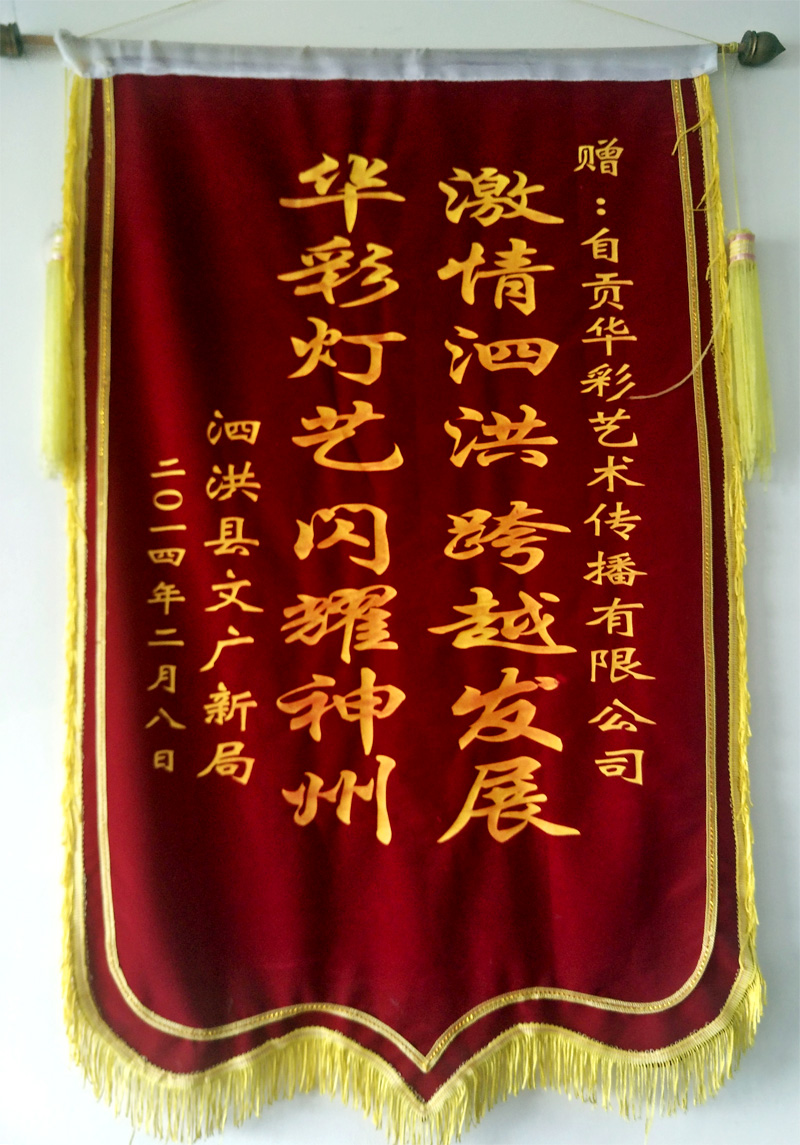 赠：自贡华彩艺术传播有限公司
激情泗洪跨越发展
华彩灯艺闪耀神州
泗洪县文广新局
二〇一四年二月八日